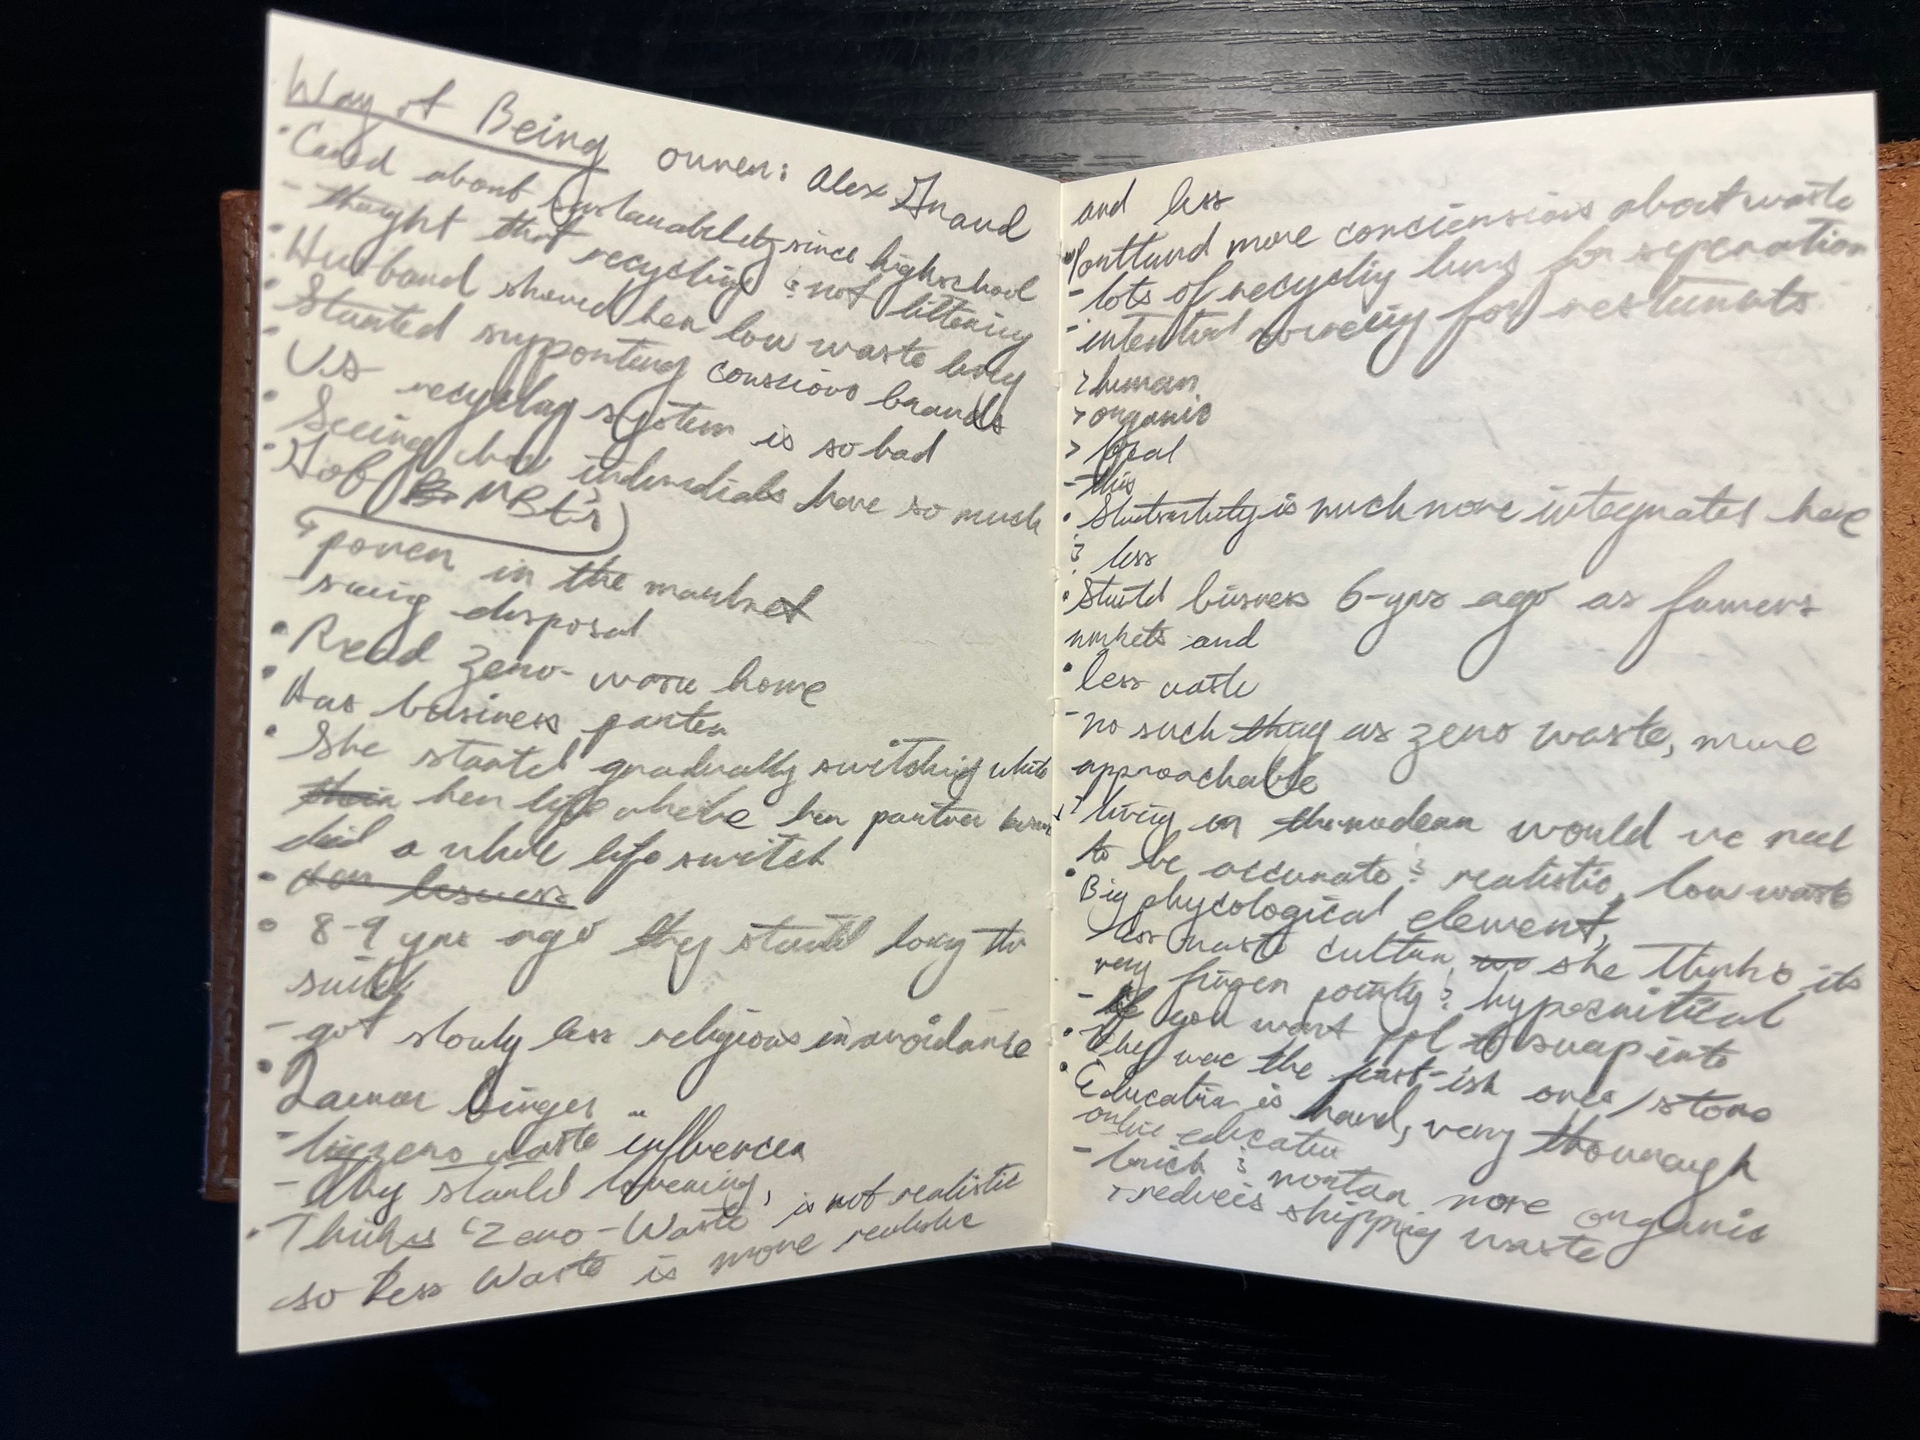 Way of Being owner: Alex
• Cared about sustainability since highschool
- thought that recycling & not littering
• Husband showed her low waste living
• Started supporting conscious brands
• US recycling system is so bad
• Seeing how individuals have so much
• Job
↳ power in the market
- disposal
• Read zero- home
• Has business parter
• She started gradually switching
her life where her partner
did a whole life switch
•
• 8-9 yrs ago they started
- got slowly less religious in avoidance
•
- big zero waste influencer
- they started
• Thinks "Zero-Waste" is not realistic
so Less Waste is more realistic
and less
• Portland more about waste
- lots of recycling bins for seperation
- for
> human
> organic
> local
- this
• is much more integrated here
& less
• Startd business 6-yrs ago as famers
markets and
• less waste
- no such thing as zero waste, more
approachable
- living in would we need
to be accurate & realistic, low waste
• Big element,
- less waste cultur, she thinks its
very finger pointy & hypocritical
- If you want ppl to into
• They were the first-ish ones/store
• Education is hard, very
online education
- brick & mortar more organic
> shipping waste